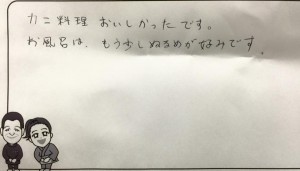 カニ料理 おいしかったです。
お風呂は、もう少しぬるめがなみです。